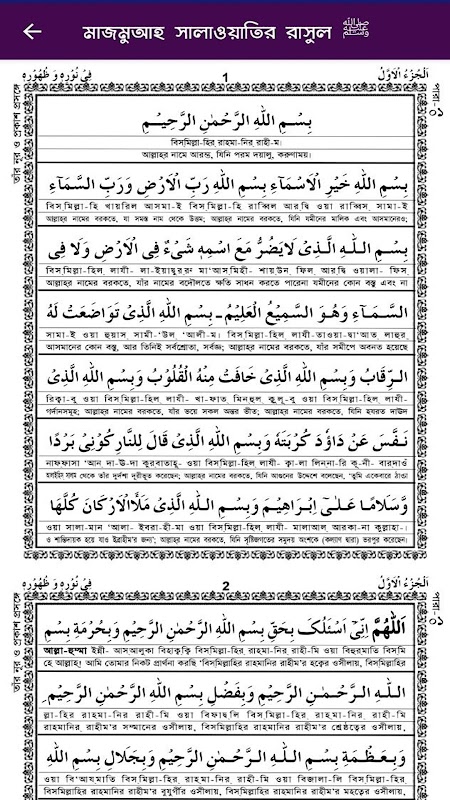 মাজমুআহ সালাওয়াতির রাসুল ﷺ
اَلْجُزْءُ الْاَوَّلُ 1 فِيْ نُوْرِهٖ وَ ظُهُوْرِهٖ
পারা-১
তাঁর নুর ও প্রকাশ প্রসঙ্গে
بِسْمِ اللهِ الرَّحْمٰنِ الرَّحِيْمِ
বিস্‌মিল্লা-হির রাহমা-নির রাহী-ম।
আল্লাহর নামে আরম্ভ, যিনি পরম দয়ালু, করুণাময়।
بِسْمِ اللهِ خَيْرِ الْاَسْمَآءِ بِسْمِ اللهِ رَبِّ الْاَرْضِ وَرَبِّ السَّمَآءِ
বিস্‌মিল্লা-হি খায়রিল আসমা-ই বিস্‌মিল্লা-হি রাব্বিল আরদ্বি ওয়া রাব্বিস্ সামা-ই
আল্লাহর নামের বরকতে, যা সমস্ত নাম থেকে উত্তম; আল্লাহর নামের বরকতে, যিনি যমীনের মালিক এবং আসমানেরও;
بِسْمِ اللهِ الَّذِيْ لَايَضُرُّ مَعَ اسْمِهٖ شَيْءٌ فِي الْاَرْضِ وَلَا فِي
বিস্‌মিল্লা-হিল্ লাযী- লা-ইয়াদ্বুররু মা'আসমিহী- শায়উন্ ফিল্ আরদ্বি ওয়ালা- ফিস্
আল্লাহর নামের বরকতে, যাঁর নামের বদৌলতে ক্ষতি সাধন করতে পারেনা যমীনের কোন বস্তু এবং না
السَّمَآءِ وَهُوَ السَّمِيْعُ الْعَلِيْمُ ـ بِسْمِ اللهِ الَّذِيْ تَوَاضَعَتْ لَهُ
সামা-ই ওয়া হুয়াস্ সামী-'উল 'আলী-ম। বিস্‌মিল্লা-হিল্ লাযী-তাওয়া-দ্বা'আত লাহুর
আসমানের কোন বস্তু, আর তিনিই সর্বশ্রোতা, সর্বজ্ঞ; আল্লাহর নামের বরকতে, যাঁর সমীপে অবনত হয়েছে
الرِّقَابُ وَبِسْمِ اللهِ الَّذِيْ خَافَتْ مِنْهُ الْقُلُوْبُ وَبِسْمِ اللهِ الَّذِيْ
রিক্বা-বু ওয়া বিস্‌মিল্লা-হিল্ লাযী- খা-ফাত্ মিনহুল কুলূ-বু ওয়া বিস্‌মিল্লা-হিল্ লাযী-
গর্দানসমূহ; আল্লাহর নামের বরকতে, যাঁর ভয়ে সকল অন্তর ভীত; আল্লাহর নামের বরকতে, যিনি হযরত দাউদ
نَفَّسَ عَنْ دَاوٗدَ كُرْبَتَهٗ وَبِسْمِ اللهِ الَّذِيْ قَالَ لِلنَّارِ كُوْنِيْ بَرْدًا
নাফফাসা 'আন দা-উ-দা কুরবাতাহূ- ওয়া বিস্‌মিল্লা-হিল্ লাযী- ক্বা-লা লিন্না-রি কূ-নী- বারদাওঁ
থেকে তাঁর দুর্দশা দূরীভূত করেছেন; আল্লাহর নামের বরকতে, যিনি আগুনের উদ্দেশে বলেছেন, 'তুমি একেবারে ঠাণ্ডা
وَّسَلَامًا عَلٰى اِبْرَاهِيْمَ وَبِسْمِ اللهِ الَّذِيْ مَلَأَ الْاَرْكَانَ كُلَّهَا
ওয়া সালা-মান 'আলা- ইবরা-হী-মা ওয়া বিস্‌মিল্লা-হিল্ লাযী- মালাআল আরকা-না কুল্লাহা-।
ও শান্তিদায়ক হয়ে যাও ইব্রাহীম'র জন্য'; আল্লাহর নামের বরকতে, যিনি সৃষ্টিজগতের সমুদয় অংশকে (কল্যাণ দ্বারা) ভরপুর করেছেন।
اَلْجُزْءُ الْاَوَّلُ 2 فِيْ نُوْرِهٖ وَ ظُهُوْرِهٖ
পারা-১
তাঁর নুর ও প্রকাশ প্রসঙ্গে
اَللّٰهُمَّ اِنِّيْ اَسْئَلُكَ بِحَقِّ بِسْمِ اللهِ الرَّحْمٰنِ الرَّحِيْمِ وَبِحُرْمَةِ بِسْمِ
আল্লা-হুম্মা ইন্নী- আস্আলুকা বিহাক্বক্বি বিস্‌মিল্লা-হির্ রাহমা-নির্ রাহী-মি ওয়া বিহুরমাতি বিস্‌মি
হে আল্লাহ! আমি তোমার নিকট প্রার্থনা করছি 'বিসমিল্লাহির রাহমানির রাহীম'র হক্বের ওসীলায়, বিসমিল্লাহির
اللهِ الرَّحْمٰنِ الرَّحِيْمِ وَبِفَضْلِ بِسْمِ اللهِ الرَّحْمٰنِ الرَّحِيْمِ
ল্লা-হির রাহমা-নির রাহী-মি ওয়া বিফাদ্বলি বিস্‌মিল্লা-হির্ রাহমা-নির রাহী-মি
রাহমানির রাহীম'র সম্মানের ওসীলায়, বিসমিল্লাহির রাহমানির রাহীম'র শ্রেষ্ঠত্বের ওসীলায়,
وَبِعَظْمَةِ بِسْمِ اللهِ الرَّحْمٰنِ الرَّحِيْمِ وَبِجَلَالِ بِسْمِ اللهِ
ওয়া বি'আয্‌মাতি বিস্‌মিল্লা-হির্ রাহমা-নির্ রাহী-মি ওয়া বিজালা-লি বিস্‌মিল্লা-হির্
বিসমিল্লাহির রাহমানির রাহীম'র বুযুর্গীর ওসীলায়, বিসমিল্লাহির রাহমানির রাহীম'র মহত্বের ওসীলায়,